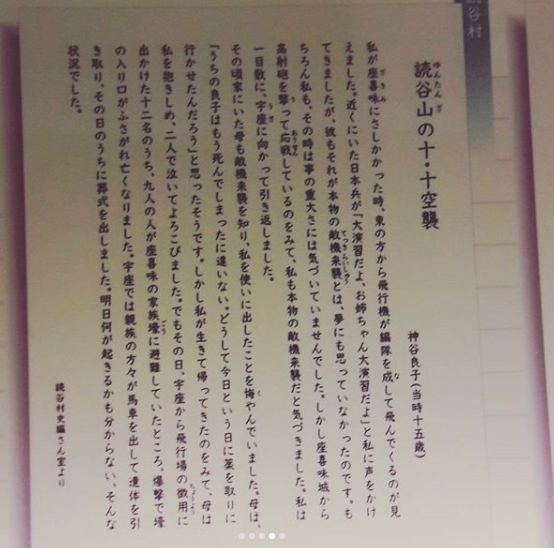 読谷村
読谷山の十・十空襲
ゆんたんざ
神谷良子(当時十五歳)
私が座喜味にさしかかった時、東の方から飛行機が編隊を成して飛んでくるのが見
えました。近くにいた日本兵が「大演習だよ、お姉ちゃん大演習だよ」と私に声をかけ
てきましたが、彼もそれが本物の敵機来襲とは、夢にも思っていなかったのです。も
ちろん私も、その時は事の重大さには気づいていませんでした。しかし座喜味城から
高射砲を撃って応戦しているのをみて、私も本物の敵機来襲だと気づきました。私は
一目散に、宇座に向かって引き返しました。
その頃家にいた母も敵機来襲を知り、私を使いに出したことを悔やんでいました。母は、
「うちの良子はもう死んでしまったに違いない。どうして今日という日に薬を取りに
行かせたんだろう」と思ったそうです。しかし私が生きて帰ってきたのをみて、母は
私を抱きしめ、二人で泣いてよろこびました。でもその日、宇座から飛行場の徴用に
出かけた十二名のうち、九人の人が座喜味の家族壕に避難していたところ、爆撃で壕
の入り口がふさがれ亡くなりました。宇座では親族の方々が馬車を出して遺体を引
き取り、その日のうちに葬式を出しました。明日何が起きるかも分からない、そんな
状況でした。
読谷村史編さん室より